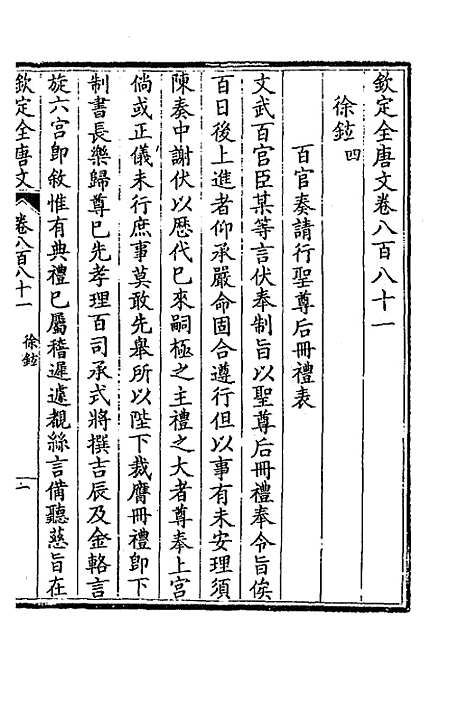 欽定全唐文卷八百八十一
徐鉉四
百官奏請行聖尊后冊禮表
文武百官臣某等言伏奉制旨以聖尊后冊禮奉令旨俟
百日後上進者仰承嚴命固合遵行但以事有未安理須
陳奏中謝伏以歷代已來嗣極之主禮之大者尊奉上宮
倘或正儀未行庶事莫敢先舉所以陛下裁膺冊禮卽下
制書長樂歸尊已先孝理百司承式將撰吉辰及金輅言
旋六宮卽敘惟有典禮已屬稽遲遽覩絲言備聽慈旨在
欽定全唐文
卷八百八十一
徐鉉
一